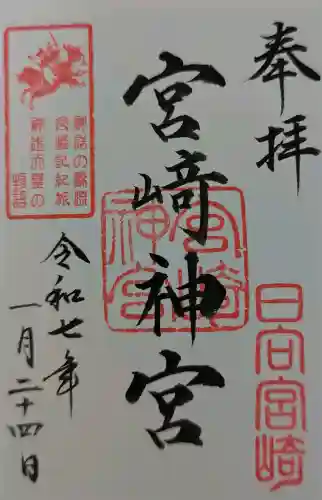 奉拝
日向宮崎
宮﨑神宮
宮崎神宮
神話の源流
宮崎記紀
神武天皇の
物語
令和七年
一月二十四日